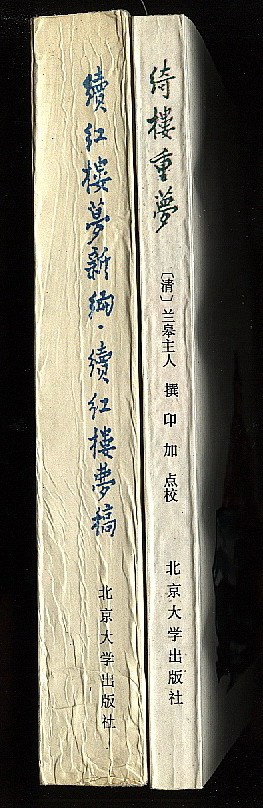 續红樓夢新编·續红樓夢稿
北京大学出版社
绮樓重夢
〔清〕兰皋主人 撰 印 加 点校
北京大学出版社